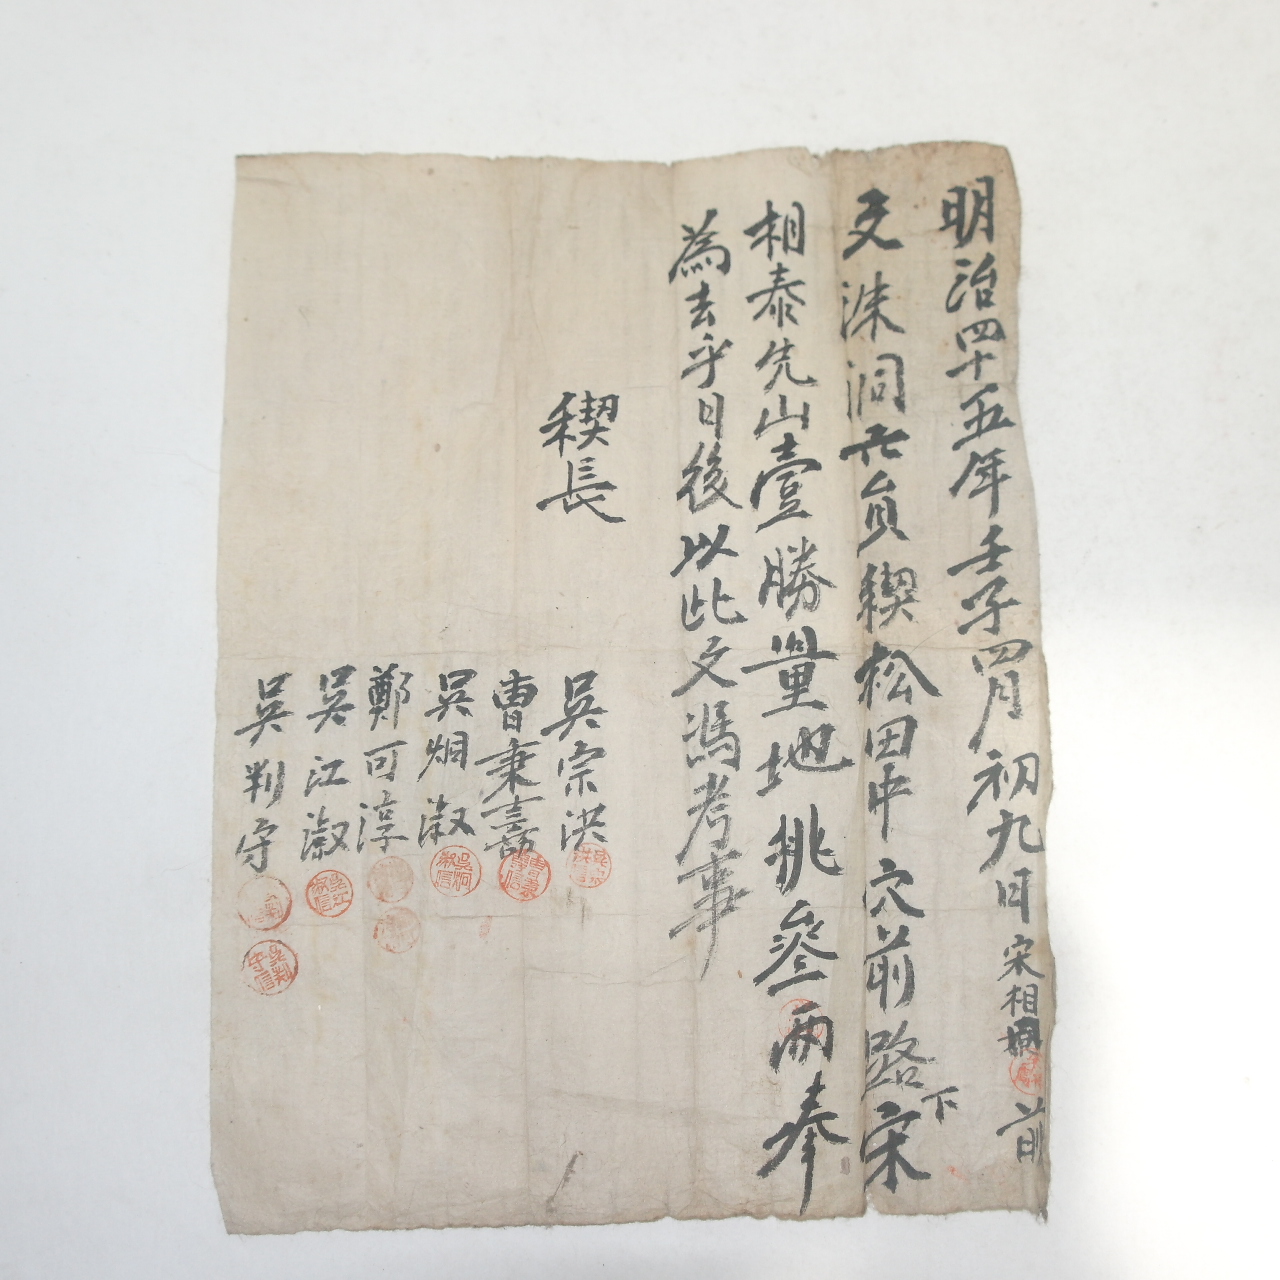 明治四十五年壬子四月初九日宋相興前
文洙洞六員稧松田中穴前路下宋
相泰先山壹勝量地桃參兩奉
為去乎日後以此文馮考事
稧長
吳宗洪
曺秉嘉
吳炯淑
鄭可淳
吳江淑
吳判守